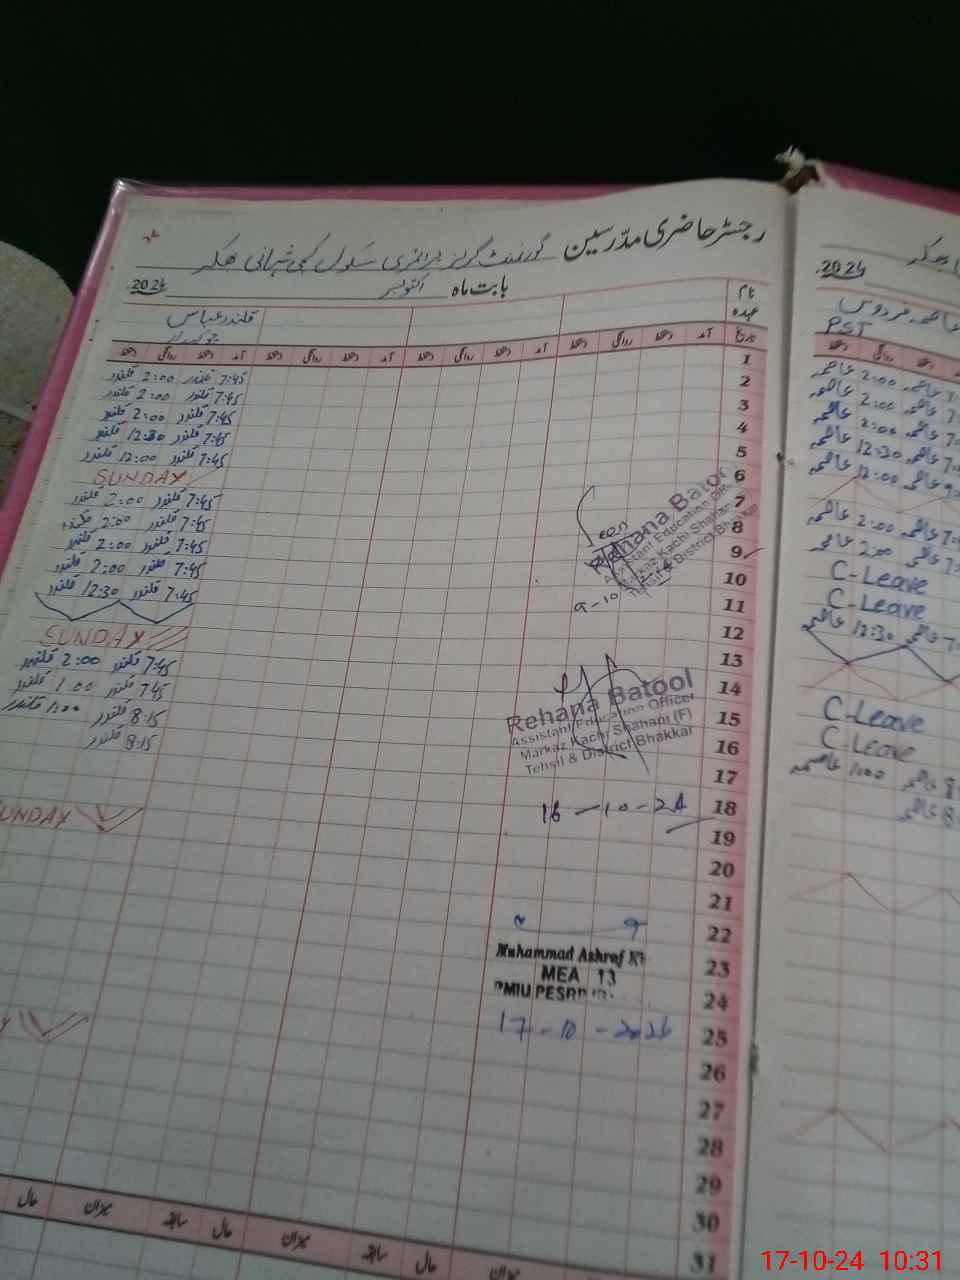 رجسٹر حاضری مدرسین گورنمنٹ گرلز پرائمری سکول کچی شہانی بھکر
بابت ماہ اکتوبر 2024
نام
عہدہ
قلندر عباس
چوکیدار
تاریخ آمد دستخط روانگی دستخط آمد دستخط روانگی دستخط آمد دستخط روانگی دستخط آمد دستخط روانگی دستخط
1 7:45 قلندر 2:00 قلندر
2 7:45 قلندر 2:00 قلندر
3 7:45 قلندر 2:00 قلندر
4 7:45 قلندر 12:30 قلندر
5 7:45 قلندر 12:00 قلندر
6 SUNDAY
7 7:45 قلندر 2:00 قلندر
8 7:45 قلندر 2:00 قلندر
9 7:45 قلندر 2:00 قلندر
10 7:45 قلندر 2:00 قلندر
11 7:45 قلندر 12:30 قلندر
12
13 SUNDAY
14 7:45 قلندر 2:00 قلندر
15 7:45 قلندر 1:00 قلندر
16 8:15 قلندر 1:00 قلندر
17 8:15 قلندر
18
19
20 SUNDAY
21
22
23
24
25
26
27
28
29
30
31
Seen
Rehana Batool
Assistant Education Officer
Markaz Kachi Shahani
Tehsil & District Bhakkar
9-10-24
Rehana Batool
Assistant Education Officer
Markaz Kachi Shahani (F)
Tehsil & District Bhakkar
16-10-24
Muhammad Ashraf
MEA 13
PMIU PESRP
17-10-2024
میزان سابقہ حال میزان سابقہ حال میزان
بھکر
2024
عاصمہ فردوس
PST
دستخط روانگی دستخط
عاصمہ 2:00 عاصمہ
عاصمہ 2:00 عاصمہ
عاصمہ 2:00 عاصمہ
عاصمہ 12:30 عاصمہ
عاصمہ 12:00 عاصمہ
عاصمہ 2:00 عاصمہ
عاصمہ 2:00 عاصمہ
C-Leave
C-Leave
عاصمہ 12:30 عاصمہ
C-Leave
C-Leave
عاصمہ 1:00 عاصمہ
عاصمہ
17-10-24 10:31